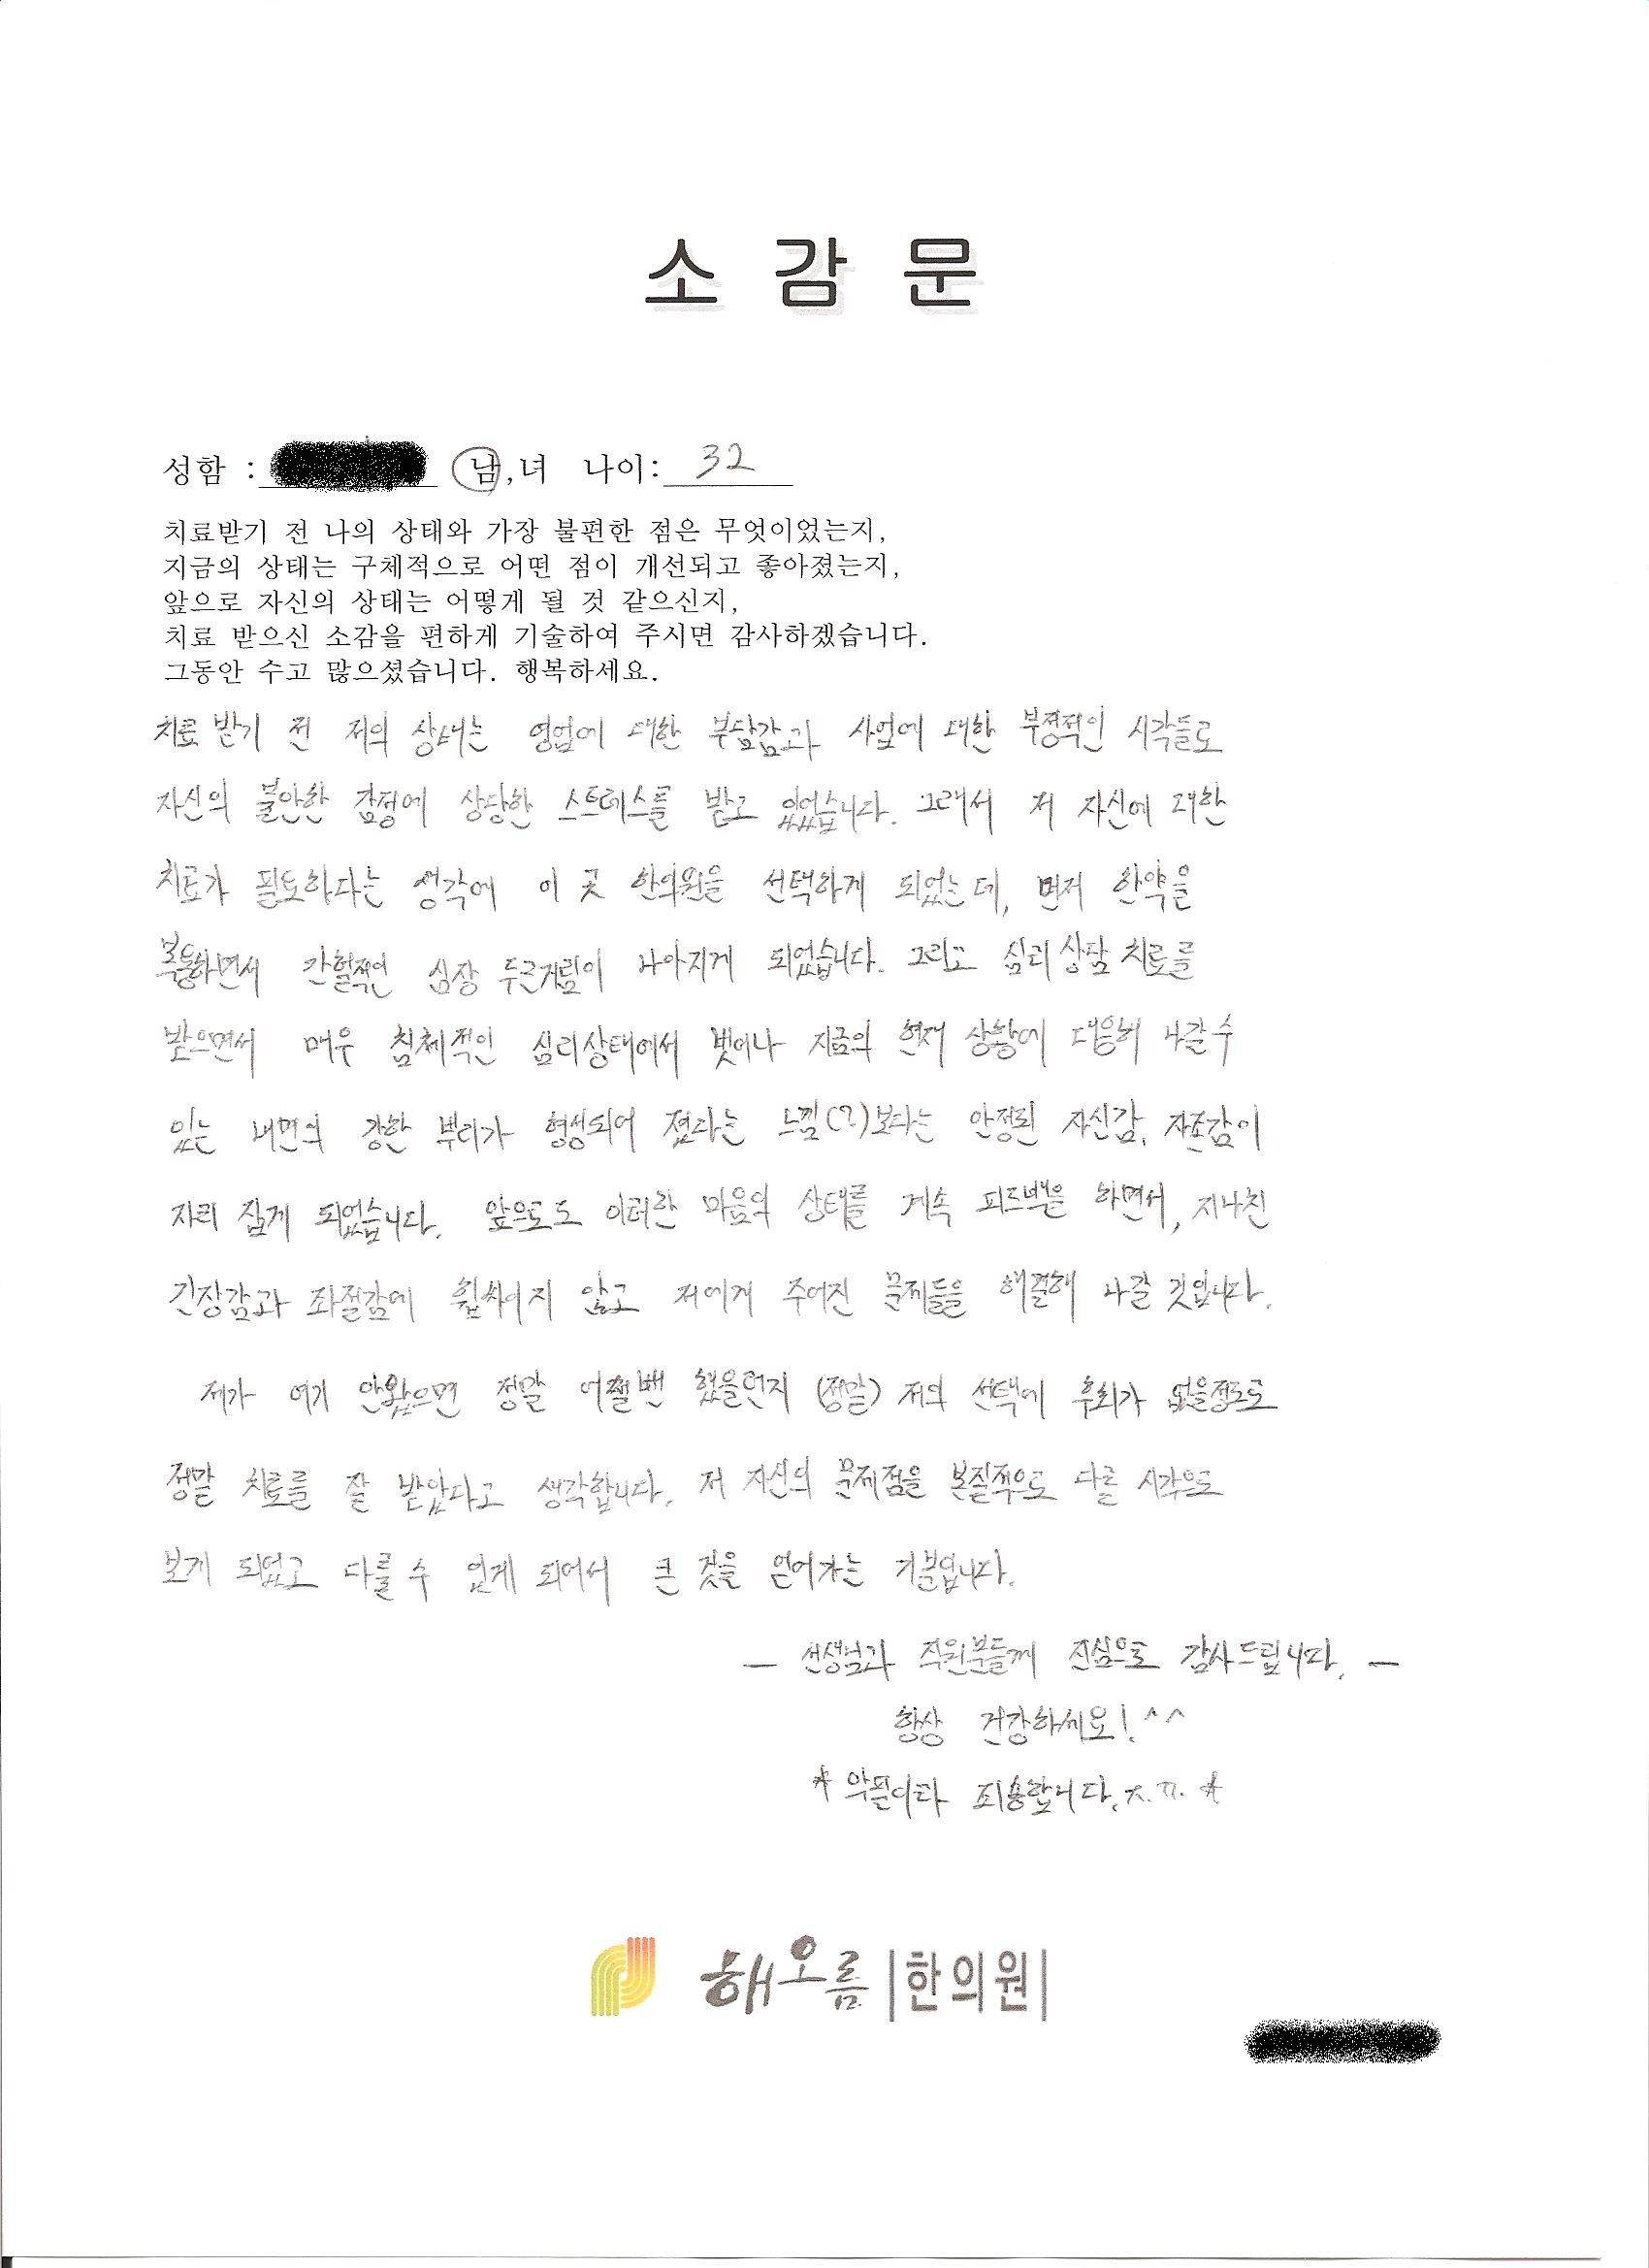 소 감 문
성함 : 남,녀 나이: 32
치료받기 전 나의 상태와 가장 불편한 점은 무엇이었는지,
지금의 상태는 구체적으로 어떤 점이 개선되고 좋아졌는지,
앞으로 자신의 상태는 어떻게 될 것 같으신지,
치료 받으신 소감을 편하게 기술하여 주시면 감사하겠습니다.
그동안 수고 많으셨습니다. 행복하세요.
치료 받기 전 저의 상태는 영업에 대한 부담감과 사업에 대한 부정적인 시각들로
자신의 불안한 감정에 상당한 스트레스를 받고 있었습니다. 그래서 저 자신에 대한
치료가 필요하다는 생각에 이 곳 한의원을 선택하게 되었는데, 먼저 한약을
복용하면서 간헐적인 심장 두근거림이 나아지게 되었습니다. 그리고 심리 상담 치료를
받으면서 매우 침체적인 심리상태에서 벗어나 지금의 현재 상황에 대응해 나갈 수
있는 내면의 강한 뿌리가 형성되어 졌다는 느낌(?)보다는 안정된 자신감, 자존감이
자리 잡게 되었습니다. 앞으로도 이러한 마음의 상태를 계속 피드백을 하면서, 지나친
긴장감과 좌절감에 휩싸이지 않고 저에게 주어진 문제들을 해결해 나갈 것입니다.
제가 여기 안왔으면 정말 어쩔뻔 했을런지 (정말) 저의 선택에 후회가 없을정도로
정말 치료를 잘 받았다고 생각합니다. 저 자신의 문제점을 본질적으로 다른 시각으로
보게 되었고 다룰 수 있게 되어서 큰 것을 얻어가는 기분입니다.
— 선생님과 직원분들께 진심으로 감사드립니다. —
항상 건강하세요! ^^
* 악필이라 죄송합니다. ㅠ.ㅠ. *
해오름 |한의원|